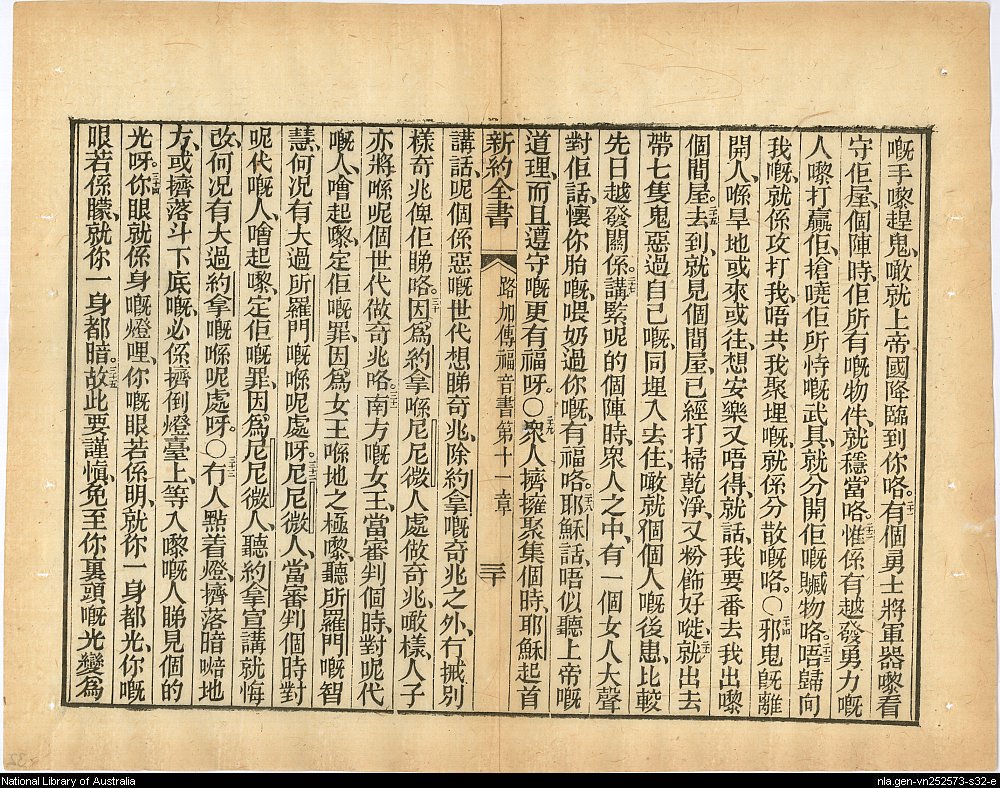 嘅手嚟趕鬼、噉就上帝國降臨到你咯。二十一有個勇士將軍器嚟看
守佢屋、個陣時、佢所有嘅物件、就穩當咯。二十二惟係有越發勇力嘅
人嚟打贏佢、搶曉佢所恃嘅武具、就分開佢嘅贓物咯。二十三唔歸向
我嘅、就係攻打我、唔共我聚埋嘅、就係分散嘅咯。〇二十四邪鬼旣離
開人、喺旱地或來或往、想安樂又唔得、就話、我要番去我出嚟
個間屋。二十五去到、就見個間屋、已經打掃乾淨、又粉飾好嘥、二十六就出去
帶七隻鬼惡過自己嘅、同埋入去住、噉就個個人嘅後患、比較
先日越發關係。二十七講緊呢的個陣時、衆人之中、有一個女人大聲
對佢話、懷你胎嘅、喂奶過你嘅、有福咯。二十八耶穌話、唔似聽上帝嘅
道理、而且遵守嘅更有福呀。〇二十九衆人擠擁聚集個時、耶穌起首
新約全書 路加傳福音書第十一章 三十
講話、呢個係惡嘅世代、想睇奇兆、除約拿嘅奇兆之外、冇搣別
樣奇兆俾佢睇咯。三十因爲約拿喺尼尼微人處做奇兆、噉樣、人子
亦將喺呢個世代做奇兆咯。三十一南方嘅女王、當審判個時、對呢代
嘅人、噲起嚟、定佢嘅罪、因爲女王喺地之極嚟、聽所羅門嘅智
慧、何況有大過所羅門嘅喺呢處呀。三十二尼尼微人、當審判個時、對
呢代嘅人、噲起嚟、定佢嘅罪、因爲尼尼微人、聽約拿宣講就悔
改、何況有大過約拿嘅喺呢處呀。〇三十三冇人點着燈、擠落暗暗地
方、或擠落斗下底嘅、必係擠倒燈臺上、等入嚟嘅人睇見個的
光呀。三十四你眼就係身嘅燈哩、你嘅眼若係明、就你一身都光、你嘅
眼若係矇、就你一身都暗。三十五故此要謹愼、免至你裏頭嘅光變爲
National Library of Australia
nla.gen-vn252573-s32-e